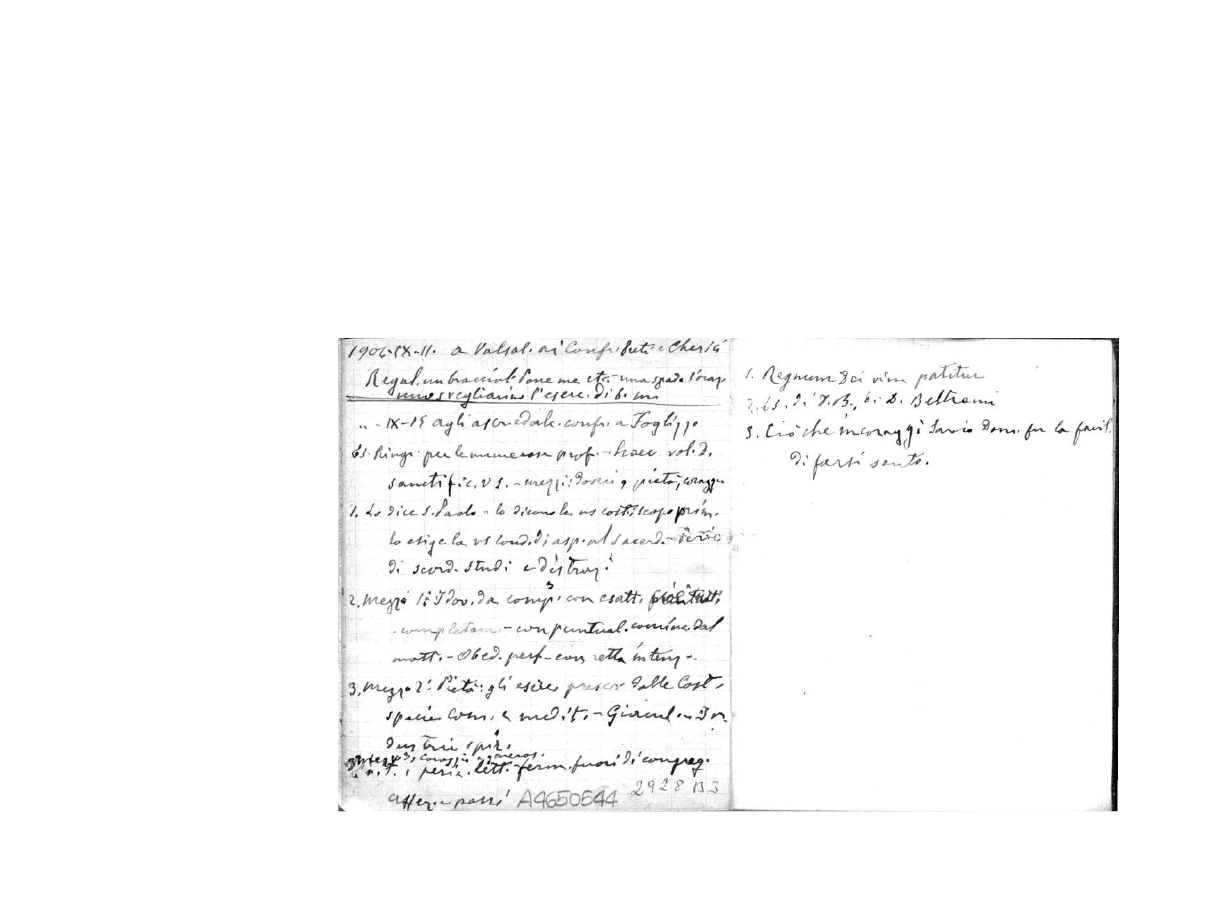 1906-IX-11. a Valsal. ai Conf. Preti e Chierici
Regal. un braccial. Pone me etc. - una spada l'oraz
uno svegliarino l'eserc. di b. m.
" - IX-15 agli ascri ed alc. conf. a Foglizzo
Es. Ringr. per le numerose prof. - haec vol. D.
sanctific. vs. - mezzi: doveri, pietà, coraggio
1. Lo dice S. Paolo - lo dicono le vs cost. scopo prim.
lo esige la vs cond. di asp. al sacerd. -
di scord. studi e distraz.
2. Mezzo 1: I dov. da comp. con esatt.
- completam. - con puntual. cominc. dal
matt. - Obed. perf. - con retta intenz.
3. Mezzo 2: Pietà: gli eserc. prescr. dalle Cost.
specie com. e medit. - Giacul. - In
dustrie spir.
3 Mezzo 3, coraggio generos.
lett. - ferm. fuori di congreg.
affez. - passi A4650544 2928 B3
1. Regnum Dei vim patitur
2. Es. di D. B., di D. Beltrami
3. Ciò che incoraggì Savio Dom. fu la facil.
di farsi santo.